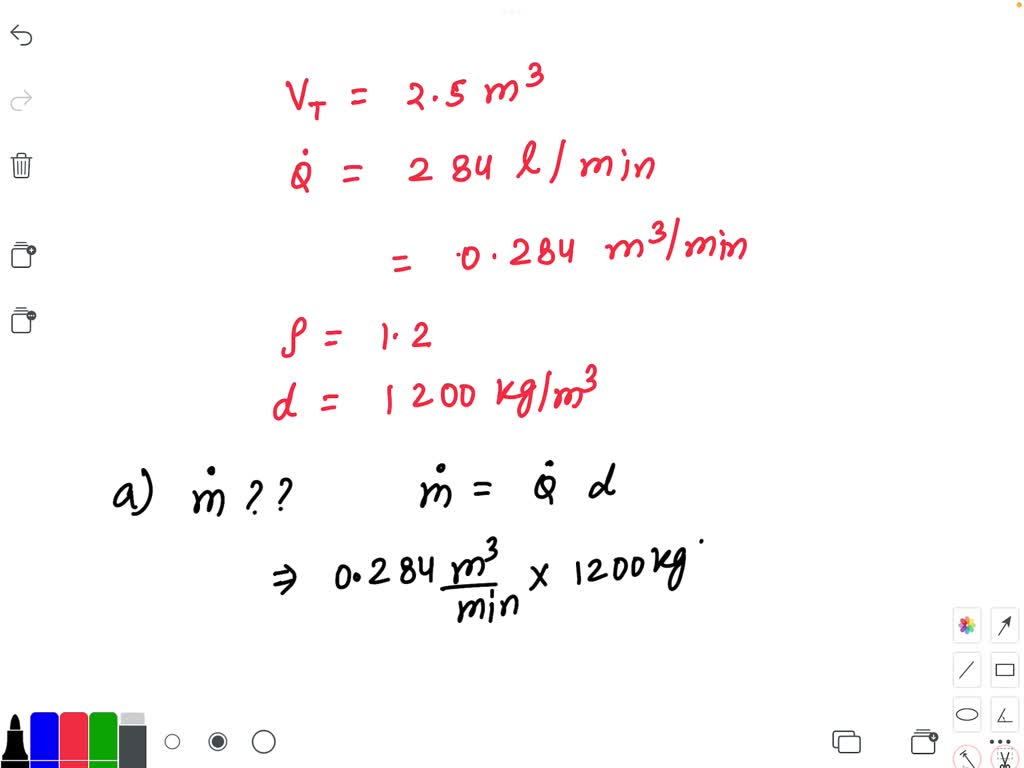 V_T = 2.5 m³
Q̇ = 284 l/min
= 0.284 m³/min
ρ = 1.2
d = 1200 kg/m³
a) ṁ ?? ṁ = Q̇ d
⇒ 0.284 m³/min × 1200 kg